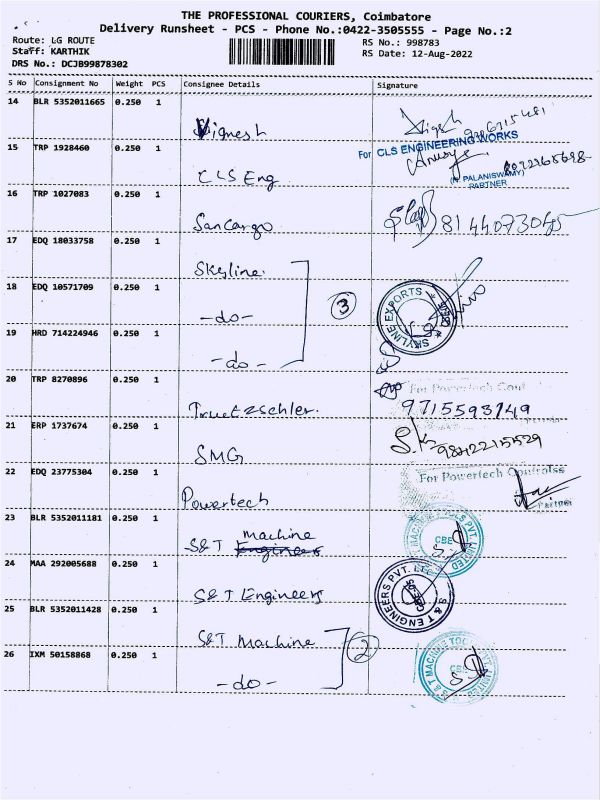 THE PROFESSIONAL COURIERS, Coimbatore
Delivery Runsheet - PCS - Phone No.:0422-3505555 - Page No.:2
Route: LG ROUTE
Staff: KARTHIK
DRS No.: DCJB99878302
RS No.: 998783
RS Date: 12-Aug-2022
S No Consignment No Weight PCS Consignee Details Signature
14 BLR 5352011665 0.250 1
Vignesh
15 TRP 1928460 0.250 1
For CLS ENGINEERING WORKS
CLS Eng
(N. PALANISWAMY)
PARTNER
16 TRP 1027083 0.250 1
SanCargo
8144073045
17 EDQ 18033758 0.250 1
Skyline
18 EDQ 10571709 0.250 1
-do-
3
SKYLINE EXPORTS
19 HRD 714224946 0.250 1
-do-
20 TRP 8270896 0.250 1
For Powertech
Truetzschler.
9715593149
21 ERP 1737674 0.250 1
SMG
22 EDQ 23775304 0.250 1
For Powertech Controlss
Powertech
Partner
23 BLR 5352011181 0.250 1
Machine
S&T Engineers
S & T MACHINE TOOLS PVT. LIMITED
CBE
24 MAA 292005688 0.250 1
S&T Engineers
S & T ENGINEERS PVT. LTD
25 BLR 5352011428 0.250 1
S&T Machine
2
26 IXM 50158868 0.250 1
-do-
S & T MACHINE TOOLS PVT. LIMITED